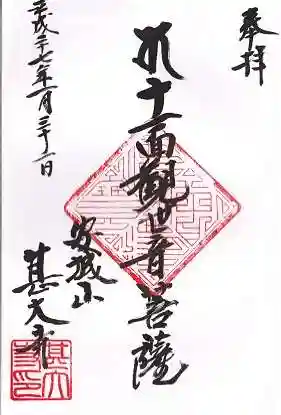 奉拝
十一面観世音菩薩
安城山
甚大寺
平成二十七年一月三十一日